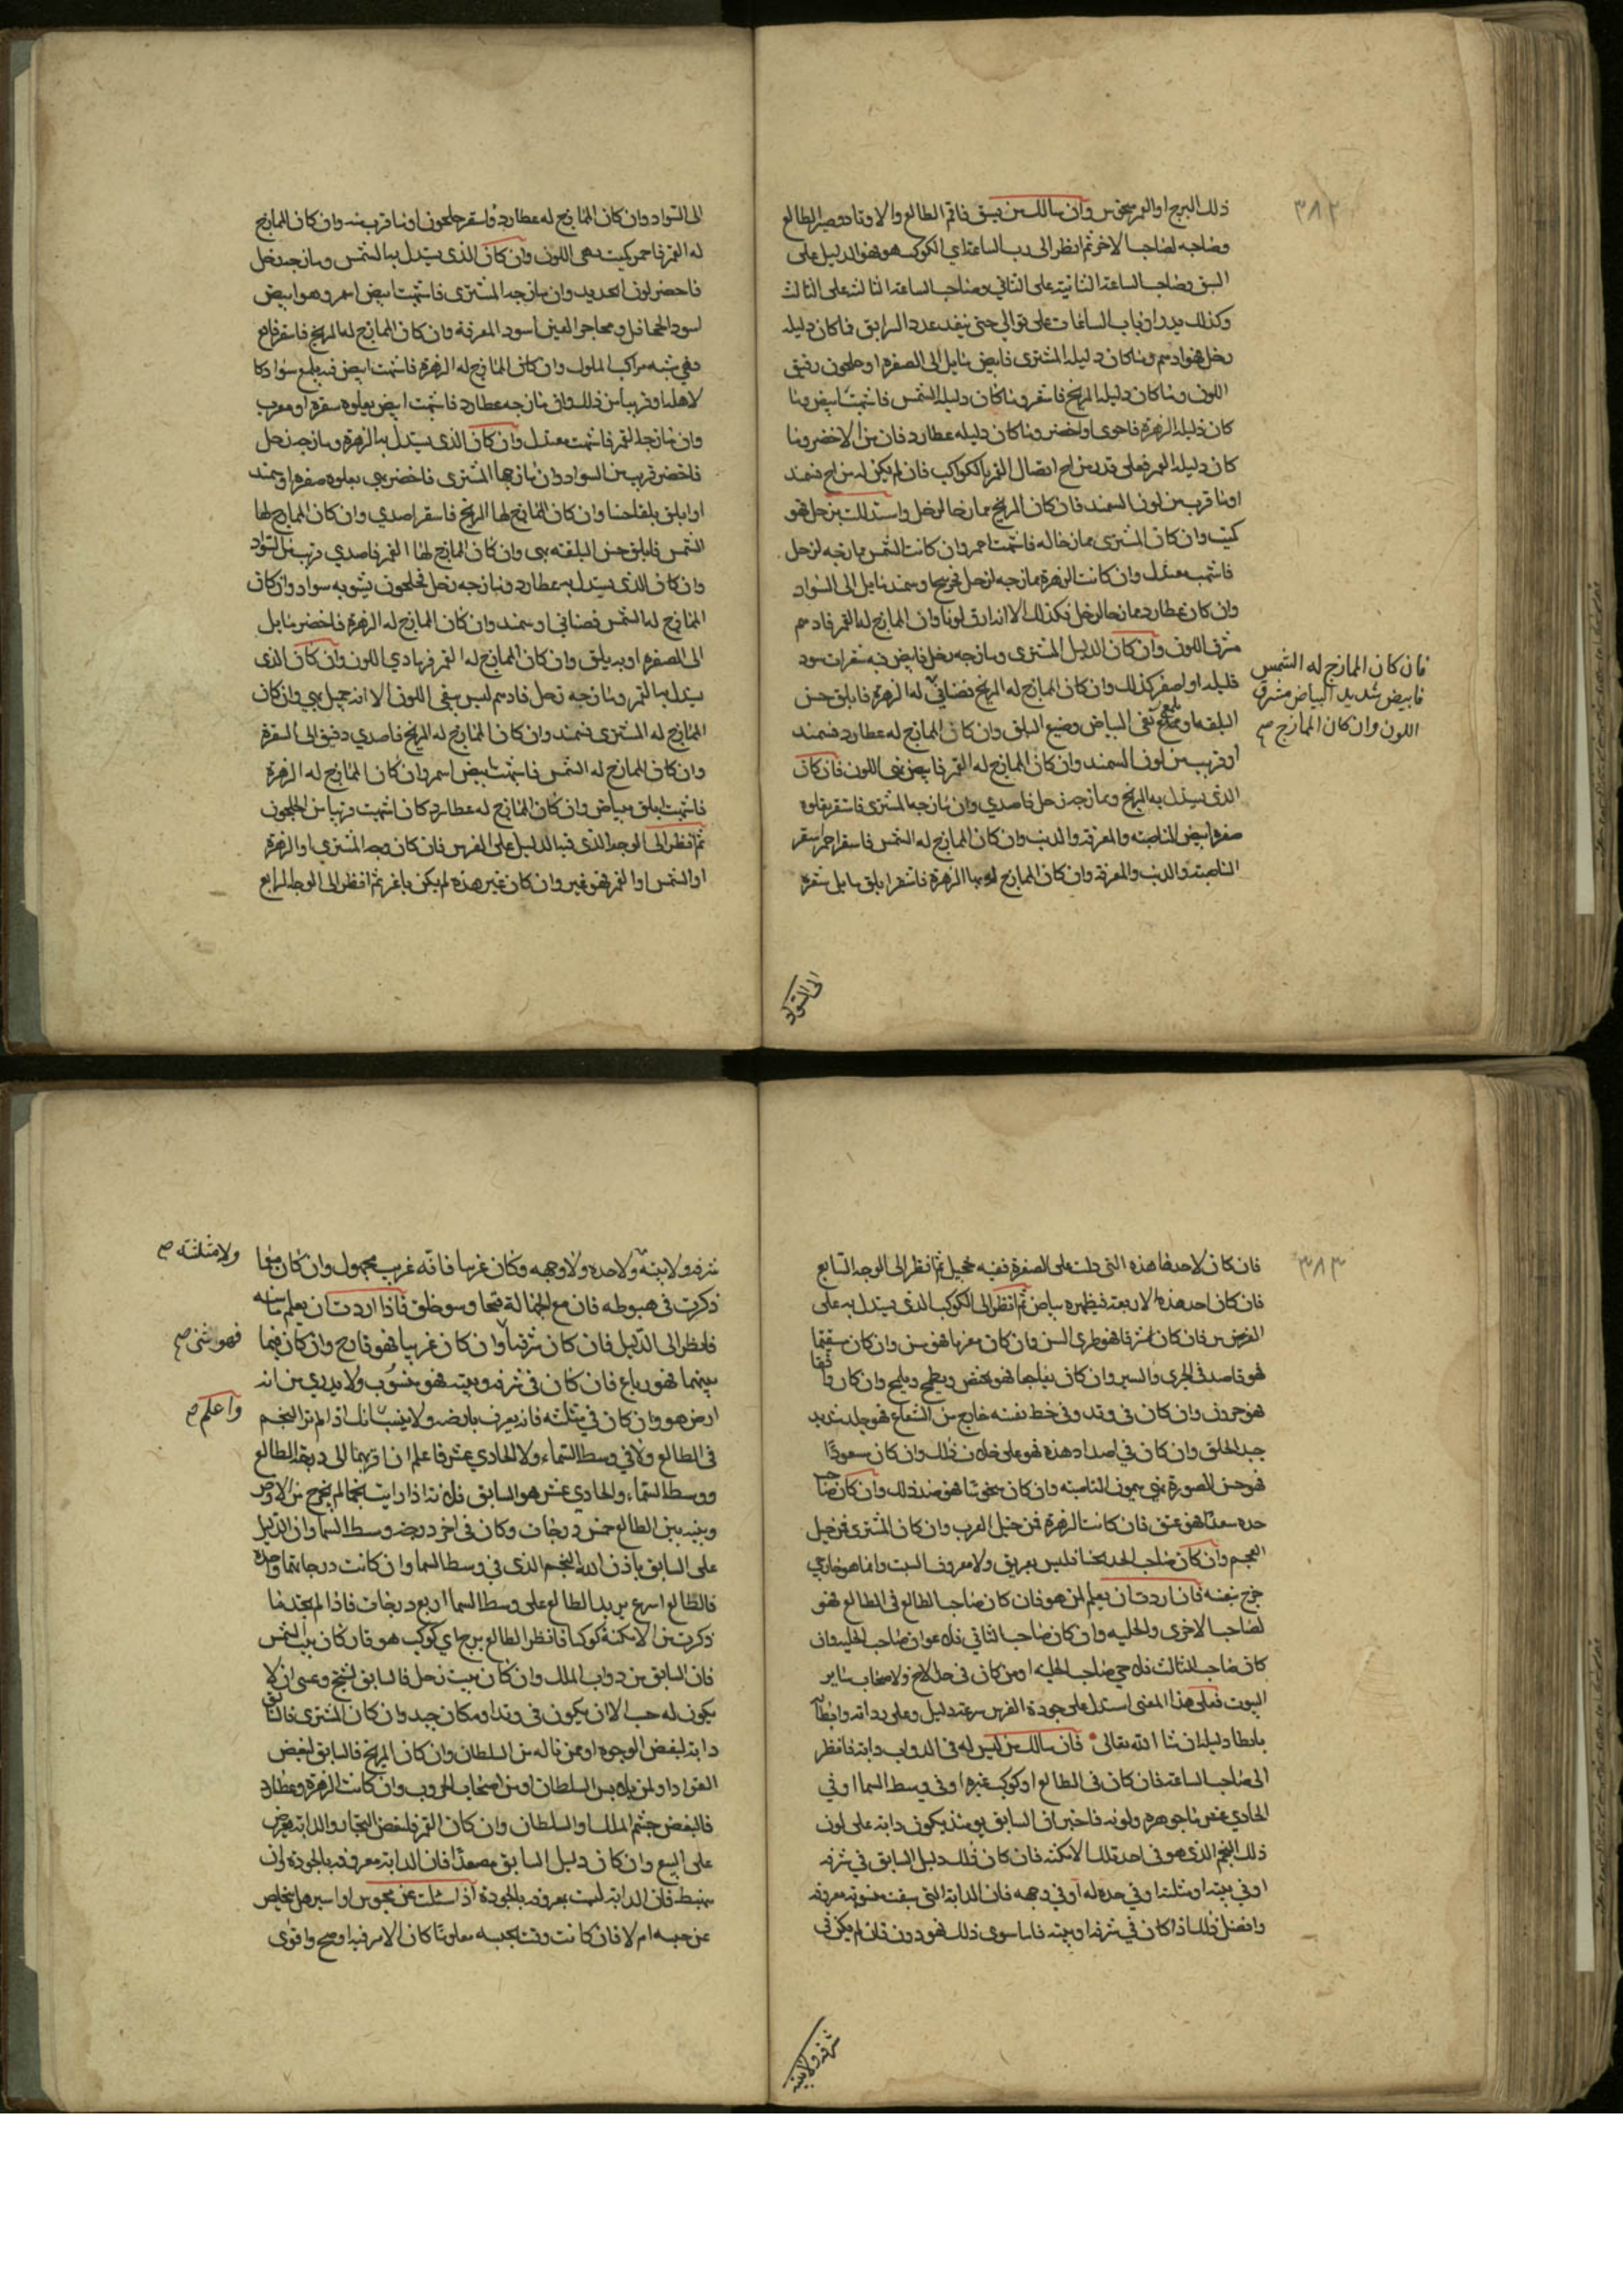 ٣٨٢
ذلك البرج او القمر منحوس وان سالك من يسبق فاقم الطالع والاوتاد فصير الطالع
وصاحبه لصاحب الاخر ثم انظر الى رب الساعة اي الكوكب هو فهو الدليل على
السبق وصاحب الساعة الثانية على الثاني وصاحب الساعة الثالثة على الثالث
وكذلك يدبر ارباب الساعات على توالي حتى ينفد عدد السوابق فما كان دليله
زحل فهو ادهم وما كان دليله المشترى فابيض مايل الى الصفرة او جلجون رقيق
اللون وما كان دليله المريخ فاشقر وما كان دليله الشمس فاشهب ابيض وما
كان دليله الزهرة فاحوى او اخضر وما كان دليله عطارد فان من الاخضر وما
كان دليله القمر فعلى قدر مزاج اتصال القمر بالكواكب فان لم يكن له مزاج فسمند
او ما قرب من لون السمند فان كان المريخ ممازجا لزحل واستدللت بزحل فهو
كميت وان كان المشترى ممازجا له فاشهب احمر وان كانت الشمس ممازجة لزحل
فاشهب معتدل وان كانت الزهرة ممازجة لزحل وسمند مايل الى السواد
وان كان عطارد ممازجا لزحل فكذلك الا انه ارق لونا وان المازج له القمر فادهم
مشرق اللون وان كان الدليل المشترى ومازجه زحل فابيض فيه شعرات سود
قليله او اصفر كذلك وان كان الممازج له المريخ له الزهرة فابلق حسن
البلقه او ملمع نقى البياض وضيع البلق وان كان الممازج له عطارد فسمند
او قريب من لون السمند وان كان الممازج له القمر فابيض نقى اللون فان كان
الذى يستدل به المريخ وممازجه زحل فاصدي وان مازجه المشترى فاشقر يعلوه
صفرة ابيض الناصيه والمعرفة والذنب وان كان الممازج له الشمس فاشقر احمر اشقر
الناصية والذنب والمعرفة وان كان الممازج له الزهرة فاشقر ابلق مايل شقرة
فان كان الممازج له الشمس
فابيض شديد البياض مشرق
اللون وان كان الممازج صح
الى السواد
الى السواد وان كان الممازج له عطارد فاشقر جلجون او ما قرب منه وان كان الممازج
له القمر فاحمر كميت بهى اللون وان كان الذى يستدل به الشمس ومازجه زحل
فاخضر لون الحديد وان مازجه المشترى فاشهب ابيض اسمر وهو ابيض
اسود الجحافل ومحاجر العين اسود المعرفة وان كان الممازج له المريخ فاشقر
وهي شبه مراكب الملوك وان كان الممازج له الزهرة فاشهب ابيض فيه بلمع سواد
او قريبا من ذلك وان مازجه عطارد فاشهب ابيض يعلوه شقرة او مغرب
وان مازجه القمر فاشهب معتدل وان كان الذى يستدل به الزهرة ومازجه زحل
فاخضر قريب من السواد وان مازجها المشترى فاخضر بهي يعلوه صفرة او سمند
او ابلق بلقا حسنا وان كان الممازج لها المريخ فاشقر اصدي وان كان الممازج لها
الشمس فابلق حسن البلقه بهى وان كان الممازج لها القمر فاصدي قريب من السواد
وان كان الذى يستدل به عطارد ومازجه زحل فجلجون يشوبه سواد وان كان
الممازج له الشمس فصنابي او سمند وان كان الممازج له الزهرة فاخضر مايل
الى الصفرة او به بلق وان كان الممازج له القمر فرمادي اللون وان كان الذى
يستدل به القمر ومازجه زحل فادهم ليس بنقى اللون الا انه جميل بهي وان كان
الممازج له المشترى فسمند وان كان الممازج له المريخ فاصدي دقيق الى الشقرة
وان كان الممازج له الشمس فاشهب ابيض اسمر وان كان الممازج له الزهرة
فاشهب ابلق ببياض وان كان الممازج له عطارد كان اشهب قريبا من الجلجون
ثم انظر الى الوجه الذى فيه الدليل على الفرس فان كان وجه المشتري او الزهرة
او الشمس او القمر فهو غير وان كان غير هذه لم يكن باغر ثم انظر الى الوجه الرابع
٣٨٣
فان كان لاحد هذه التي دلت على الصفرة ففيه تحجيل ثم انظر الى الوجه السابع
فان كان احد هذه الاربعة فبظهره بياض ثم انظر الى الكوكب الذى يستدل به على
الفرس فان كان مشرقا فهو طرى السن وان كان مغربا فهو مسن وان كان مستقيما
فهو قاصد في الجري والسير وان كان وان كان واقفا
فهو حرون وان كان في وتد وفي خط نفسه خارج من الشعاع فهو جلد شديد
جيد الخلق وان كان في اضداد هذه فهو على خلاف ذلك وان كان مسعودا
فهو حسن الصورة بهي ميمون الناصيه وان كان منحوسا فهو ضد ذلك وان كان صاحب
حده سعدا فهو عتيق فان كانت الزهرة فمن خيل العرب وان كان المشترى فمن خيل
العجم وان كان صاحب الحد نحسا فليس بعريق ولا معروف البيت وانما هو خارجي
خرج بنفسه فان اردت ان يعلم لمن هو فان كان صاحب الطالع في الطالع فهو
لصاحب الاخرى والحلبه وان كان صاحب الثاني فلاعوان صاحب الحلبه وان
كان صاحب الثالث فلاخي صاحب الحلبه او من كان في حل الاخ ولاصحاب ساير
البيوت فعلى هذا المعنى استدل على جودة الفرس بسرعة دليل وعلى رداته وابطا
بابطا دليله ان شا الله تعالى فان سالك من ليس له في الدواب دابة فانظر
الى صاحب الساعة فان كان في الطالع او كوكب غيره او في وسط السما او في
الحادي عشر ما جوهره ولونه فاخبر ان السابق يومئذ يكون دابة على لون
ذلك النجم الذى هو في احد تلك الامكنه فان كان ذلك دليل السابق في شرفه
او في بيته او مثلثه او في حده او في وجهه فان الدابة التي سبقت منسوبه معروفه
وافضل ذلك اذا كان في شرفه او بيته فاما سوى ذلك فهو دون فان لم يكن في
شرفه ولا بيته
شرفه ولا بيته ولا حده ولا وجهه وكان غربيا فانه غريب مجهول وان كان مع ما
ذكرت في هبوطه فان مع الجهالة قبحا وسو خلق فاذا اردت ان يعلم ما سنه
فانظر الى الدليل فان كان شرقيا وان كان غربيا فهو قارح وان كان فيما
بينهما فهو رباع فان كان في شرفه وبيته فهو منسوب ولا يدري من اية
ارض هو وان كان في مثلثه فانه يعرف بارضه ولا ينسب انك اذا لم تر النجم
في الطالع ولا في وسط السماء ولا الحادي عشر فاعلم ان اقربهما الى درجة الطالع
ووسط السماء والحادي عشر هو السابق فلانه اذا رايت نجما لم يخرج من الارض
وبينه بين الطالع خمس درجات وكان في اخر درجة وسط السما وان الدليل
على السابق باذن الله النجم الذى في وسط السما وان كانت درجاتهما واحدة
فالطالع اسرع يزيد الطالع على وسط السما اربع درجات فاذا لم تجد فيما
ذكرت من الامكنة كوكبا فانظر الطالع برج اي كوكب هو فان كان بيت الشمس
فان السابق من دواب الملك وان كان بيت زحل فالسابق لشيخ وعسى ان لا
يكون له حسب الا ان يكون في وتد او مكان جيد وان كان المشترى فالسابق
دابة لبعض الوجوه او ممن ناله من السلطان وان كان المريخ فالسابق لبعض
القواد او لمن يلابس السلطان او من اصحاب الحروب وان كانت الزهرة وعطارد
فالبعض حشم الملك والسلطان وان كان القمر فلبعض التجار والدابة تعرض
على البيع وان كان دليل السابق مصعدا فان الدابة معروفه بالجودة وان
منهبط فان الدابة ليست معروفه بالجودة اذا سئلت عن محبوس او اسير هل يتخلص
من حبسه ام لا فان كانت وقت حبسه معلوما كان الامر فيه اوضح واقوى
ولا مثلثته صح
فهو ثنى صح
واعلم صح